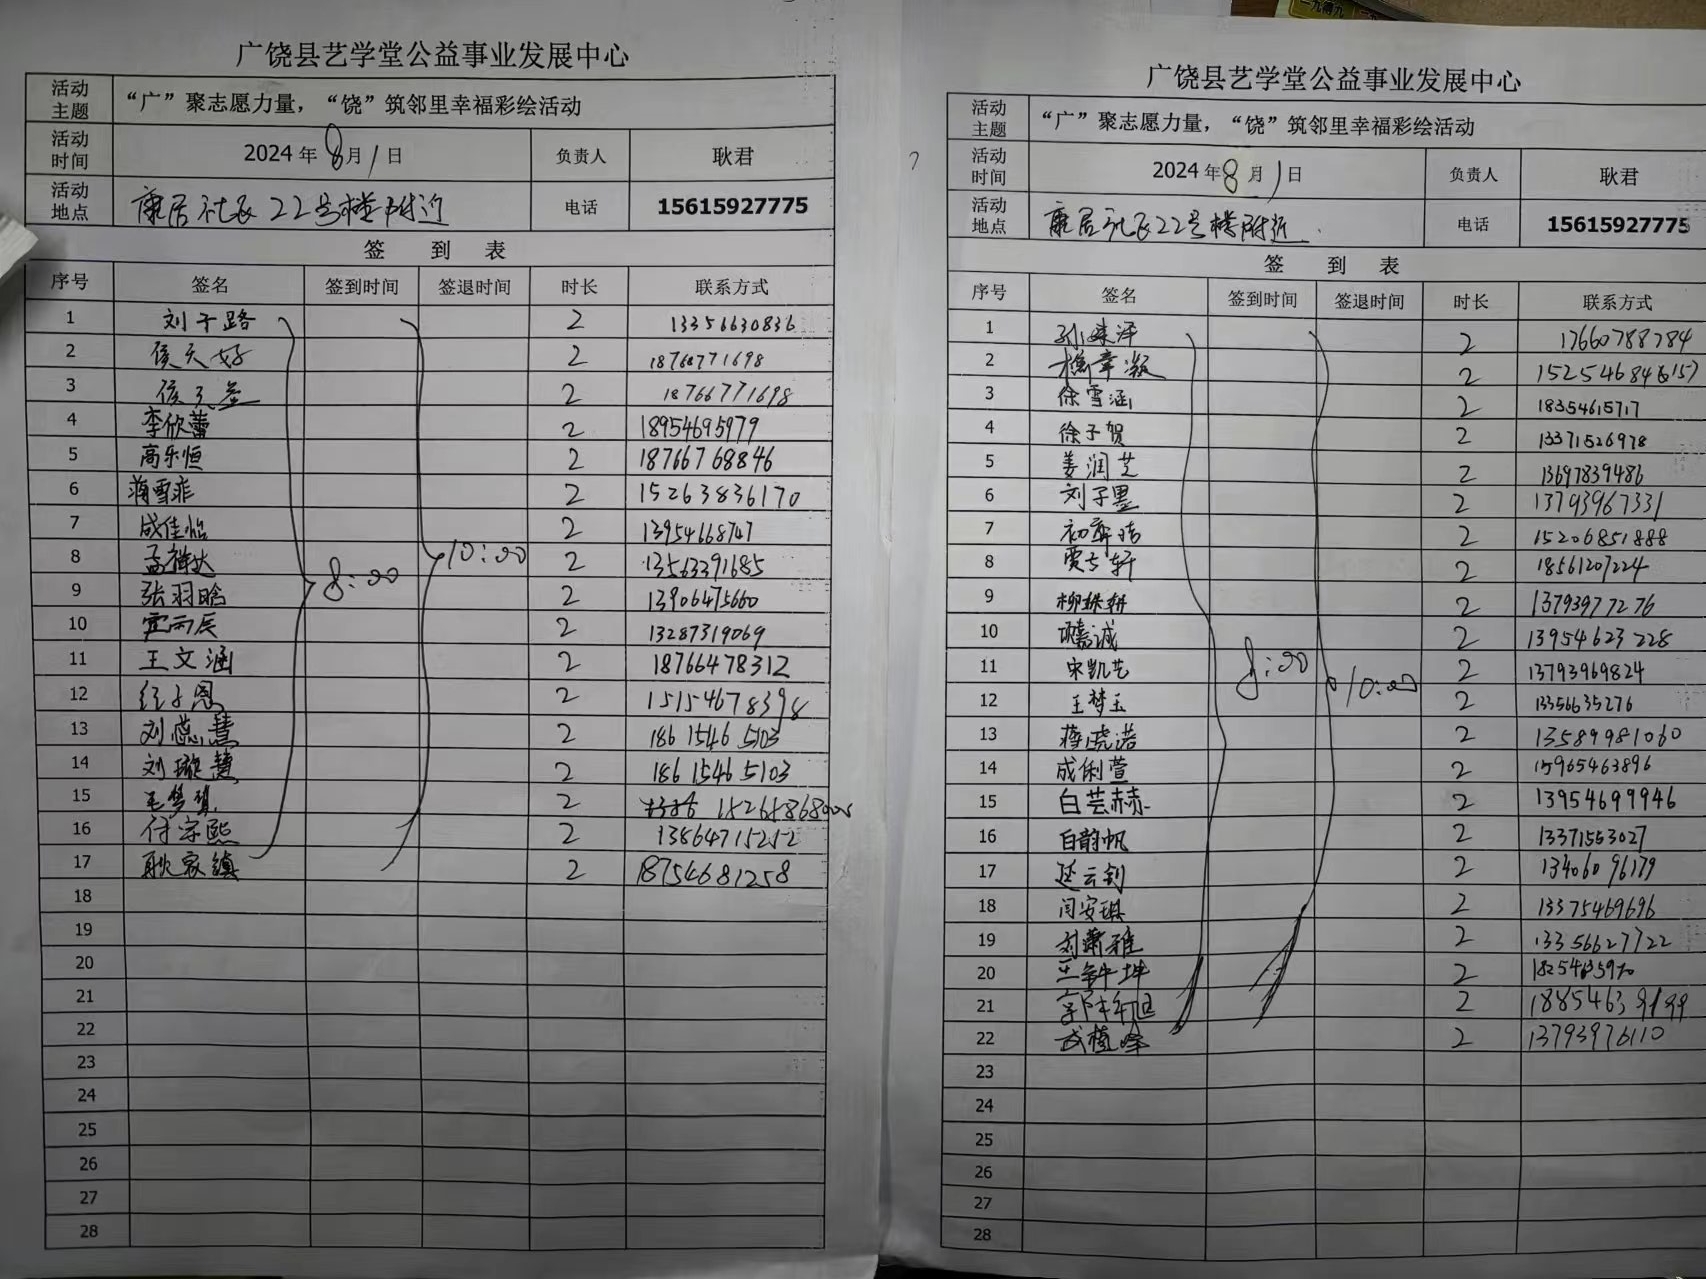 广饶县艺学堂公益事业发展中心
活动主题 “广”聚志愿力量，“饶”筑邻里幸福彩绘活动
活动时间 2024年8月1日 负责人 耿君
活动地点 康居社区22号楼附近 电话 15615927775
签 到 表
序号 签名 签到时间 签退时间 时长 联系方式
1 刘子路 2 13356630836
2 侯天好 2 18766771698
3 侯天益 2 18766771698
4 李欣蕾 2 18954695979
5 高乐恒 2 18766768846
6 蒋雪菲 2 15263836170
7 成佳怡 2 13954668747
8 孟祥达 8:00 10:00 2 13563391685
9 张羽晗 2 13906475660
10 雨辰 2 13287319069
11 王文涵 2 18766478312
12 子恩 2 15154678398
13 刘蕊慧 2 18615465103
14 刘璇慧 2 18615465103
15 毛梦琪 2
16 付宗熙 2 13864715252
17 耿家镇 2 18754681258
18
19
20
21
22
23
24
25
26
27
28
广饶县艺学堂公益事业发展中心
活动主题 “广”聚志愿力量，“饶”筑邻里幸福彩绘活动
活动时间 2024年8月1日 负责人 耿君
活动地点 康居社区22号楼附近 电话 15615927775
签 到 表
序号 签名 签到时间 签退时间 时长 联系方式
1 孙 泽 2 17660788784
2 章 凝 2
3 徐雪涵 2 18354615717
4 徐子贺 2 13371526978
5 姜润芝 2 13697839486
6 刘子墨 2 13793967331
7 初 2 15206851888
8 贾 轩 2 18561207224
9 柳 2 13793977276
10 嘉诚 2 13954623228
11 宋凯艺 8:00 10:00 2 13793969824
12 王梦玉 2 13356635276
13 蒋晓诺 2 13589981060
14 成俐萱 2 15965463896
15 白芸赫 2 13954699946
16 白韵帆 2 13371553027
17 延云钊 2 13406096179
18 闫安琪 2 13375469696
19 刘萧雅 2 13356627722
20 王钟坤 2
21 2 18854639199
22 武植峰 2 13793976110
23
24
25
26
27
28